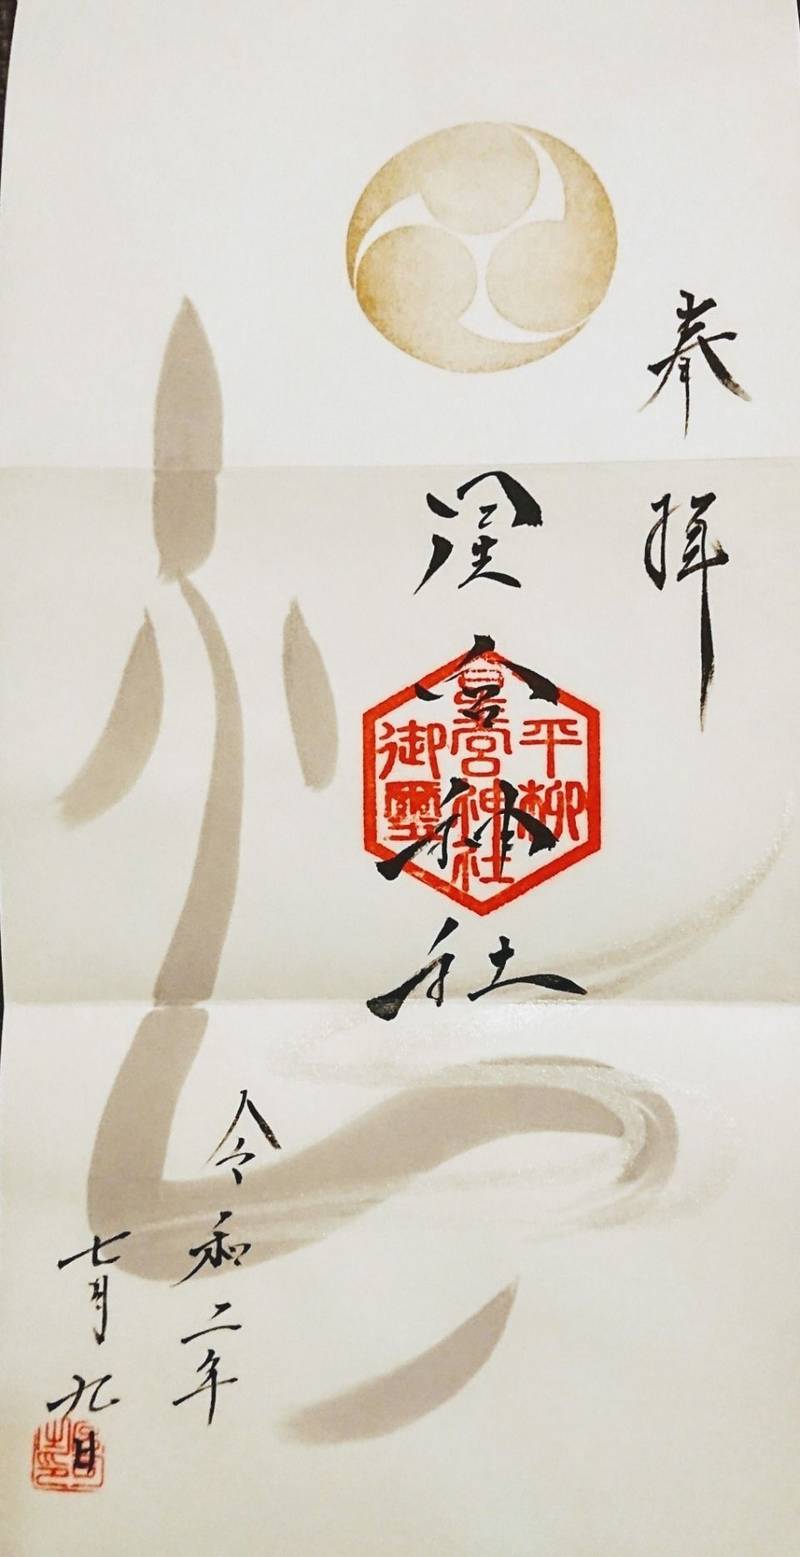 奉拝
星宮神社
平柳
星宮神社
御璽
令和二年
七月九日